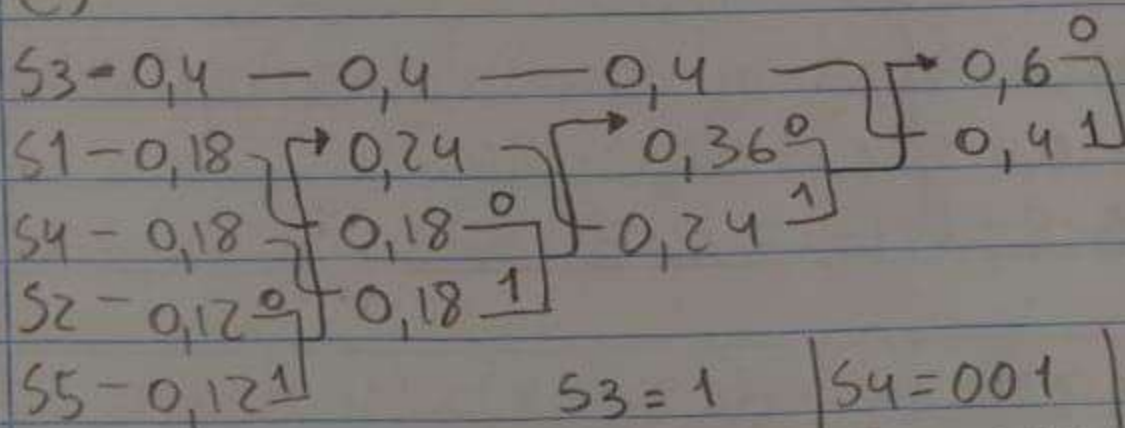 S3 - 0,4 — 0,4 — 0,4 0,6 0
S1 - 0,18 0,24 0,36 0 0,4 1
S4 - 0,18 0,18 0 0,24 1
S2 - 0,12 0 0,18 1
S5 - 0,12 1 S3 = 1 S4 = 001